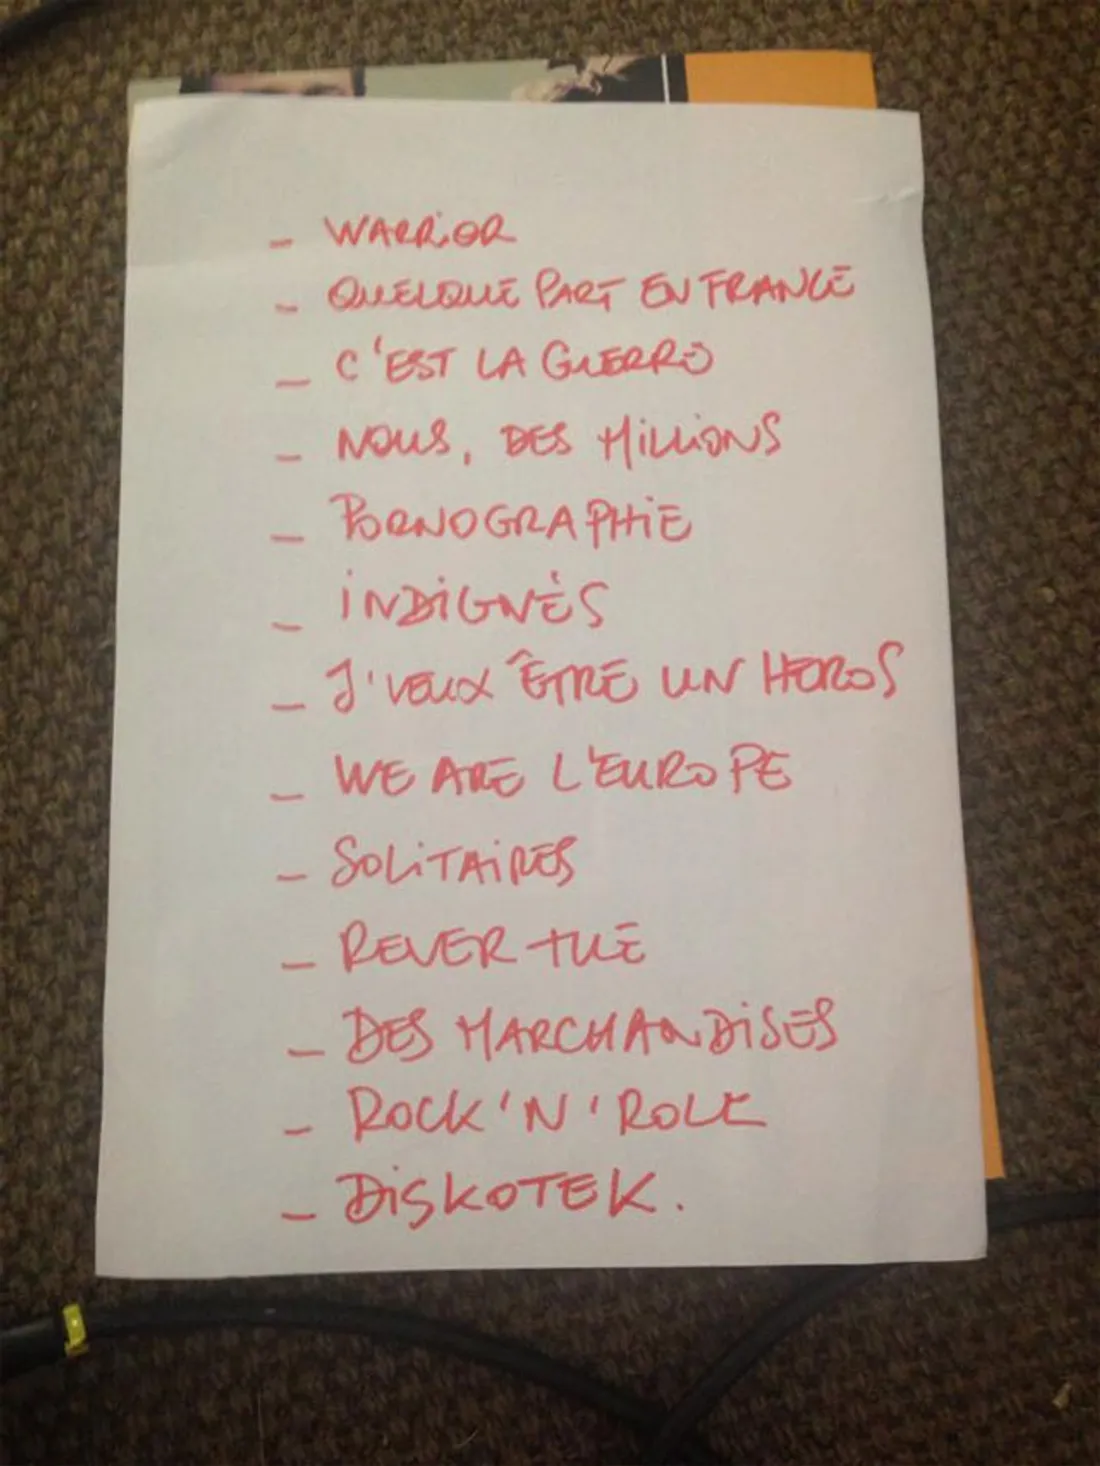 - WARRIOR
- QUELQUE PART EN FRANCE
- C'EST LA GUERRE
- NOUS, DES MILLIONS
- PORNOGRAPHIE
- INDIGNÉS
- J'VEUX ÊTRE UN HEROS
- WE ARE L'EUROPE
- SOLITAIRES
- REVER TUE
- DES MARCHANDISES
- ROCK'N'ROLL
- DISKOTEK.